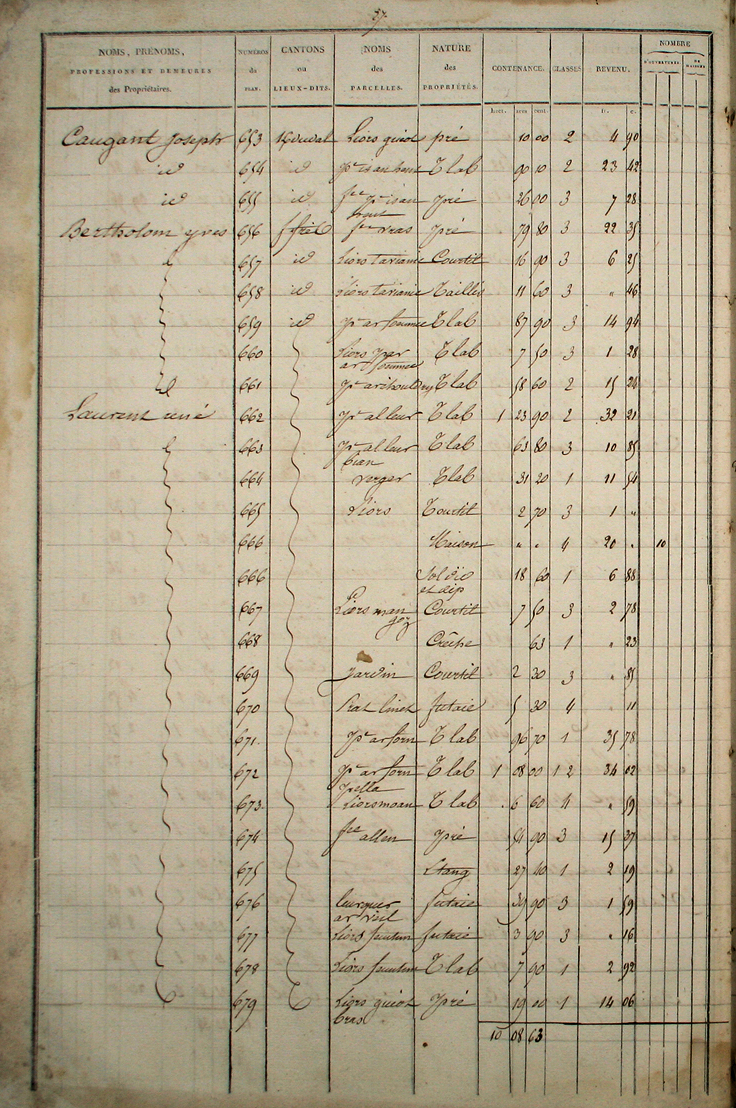 57
NOMS, PRÉNOMS, PROFESSIONS ET DEMEURES des Propriétaires. NUMÉROS du PLAN. CANTONS ou LIEUX-DITS. NOMS des PARCELLES. NATURE des PROPRIÉTÉS. CONTENANCE. CLASSES. REVENU. NOMBRE D'OUVERTURES. DE MAISONS
hect. ares cent. fr. c.
Caugant Joseph 653 Kduval Liors guiot pré 10 00 2 4 90
id 654 id T lab 90 10 2 23 42
id 655 id pré 26 00 3 7 28
Bertholom yves 656 pré 79 80 3 22 35
657 id Liors tariamé Courtil 16 90 3 6 25
658 id Liors tariamé Taillis 11 60 3 " 46
659 id T lab 87 90 3 14 94
660 Liors par T lab 7 50 3 1 28
id 661 T lab 58 60 2 15 24
Laurent rené 662 pc al leur T lab 1 23 90 2 32 21
663 pc al leur bian T lab 63 80 3 10 85
664 verger T lab 31 20 1 11 54
665 Liors Courtil 2 70 3 1 "
666 Maison " " 4 20 " 10
666 18 60 1 6 88
667 Liors man Courtil 7 50 3 2 78
668 Crêche 63 1 " 23
669 Jardin Courtil 2 30 3 " 85
670 Prat linec futaie 5 30 4 " 11
671 pc ar forn T lab 96 70 1 35 78
672 pc ar forn pella T lab 1 08 00 1 2 34 02
673 Liorsmoan T lab 6 60 4 " 59
674 fre allen pré 54 90 3 15 37
675 Etang 27 40 1 2 19
676 futaie 39 90 3 1 59
677 Liors futaie 3 90 3 " 16
678 Liors T lab 7 90 1 2 92
679 Liors guiot bras pré 19 00 1 14 06
10 08 63